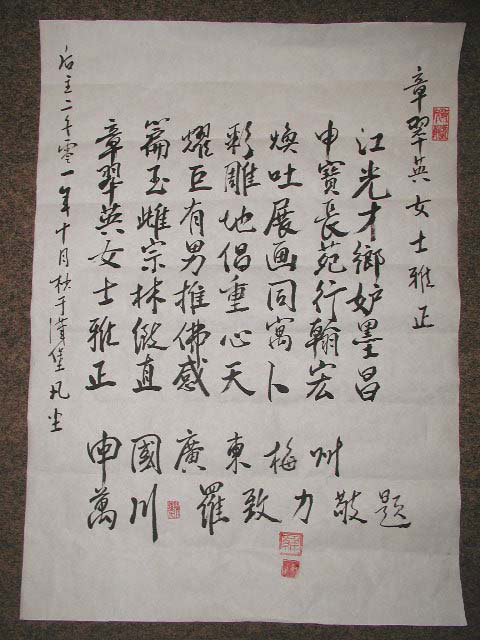 章翠英女士雅正
江光才鄉妒墨昌
申寶長苑行翰宏
煥吐展画同寓卜
彩雕地倡重心天
耀巨有男推佛感
篇玉雌宗林直
章翠英女士雅正
中國廣東梅州
萬川 羅致力敬題
二千零一年十月秋于漢堡凡尘